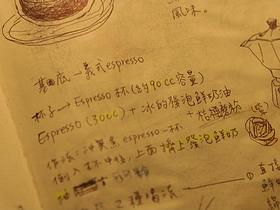 風味。
基底—義式espresso
杯子→Espresso杯(約90cc容量)
Espresso(30cc)+冰的發泡鮮奶油
+桔橙
作法:沖煮 espresso一杯
倒入杯中後,上面擠上發泡鮮奶
油
之種喝法
①直接
鮮